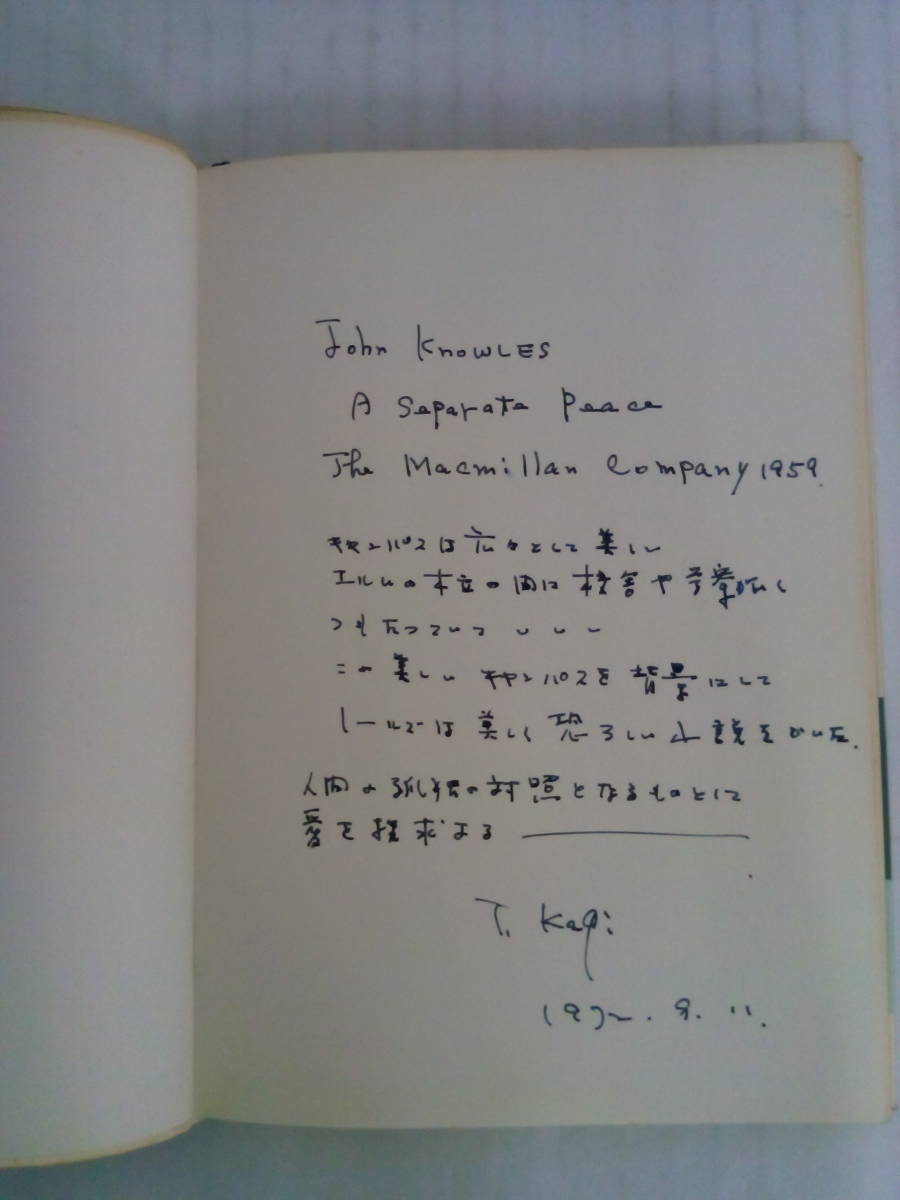 John KNOWLES
A Separate Peace
The Macmillan Company 1959.
キャンパスは広々として美しい
エルムの木立の間に校舎や学寮が
つらなっていて 、、、
この美しいキャンパスを背景にして
ノールズは美しく恐ろしい小説をかいた.
人間の孤独の対照となるものとして
愛を探求する ―――
T. Kagi
1972. 9. 11.